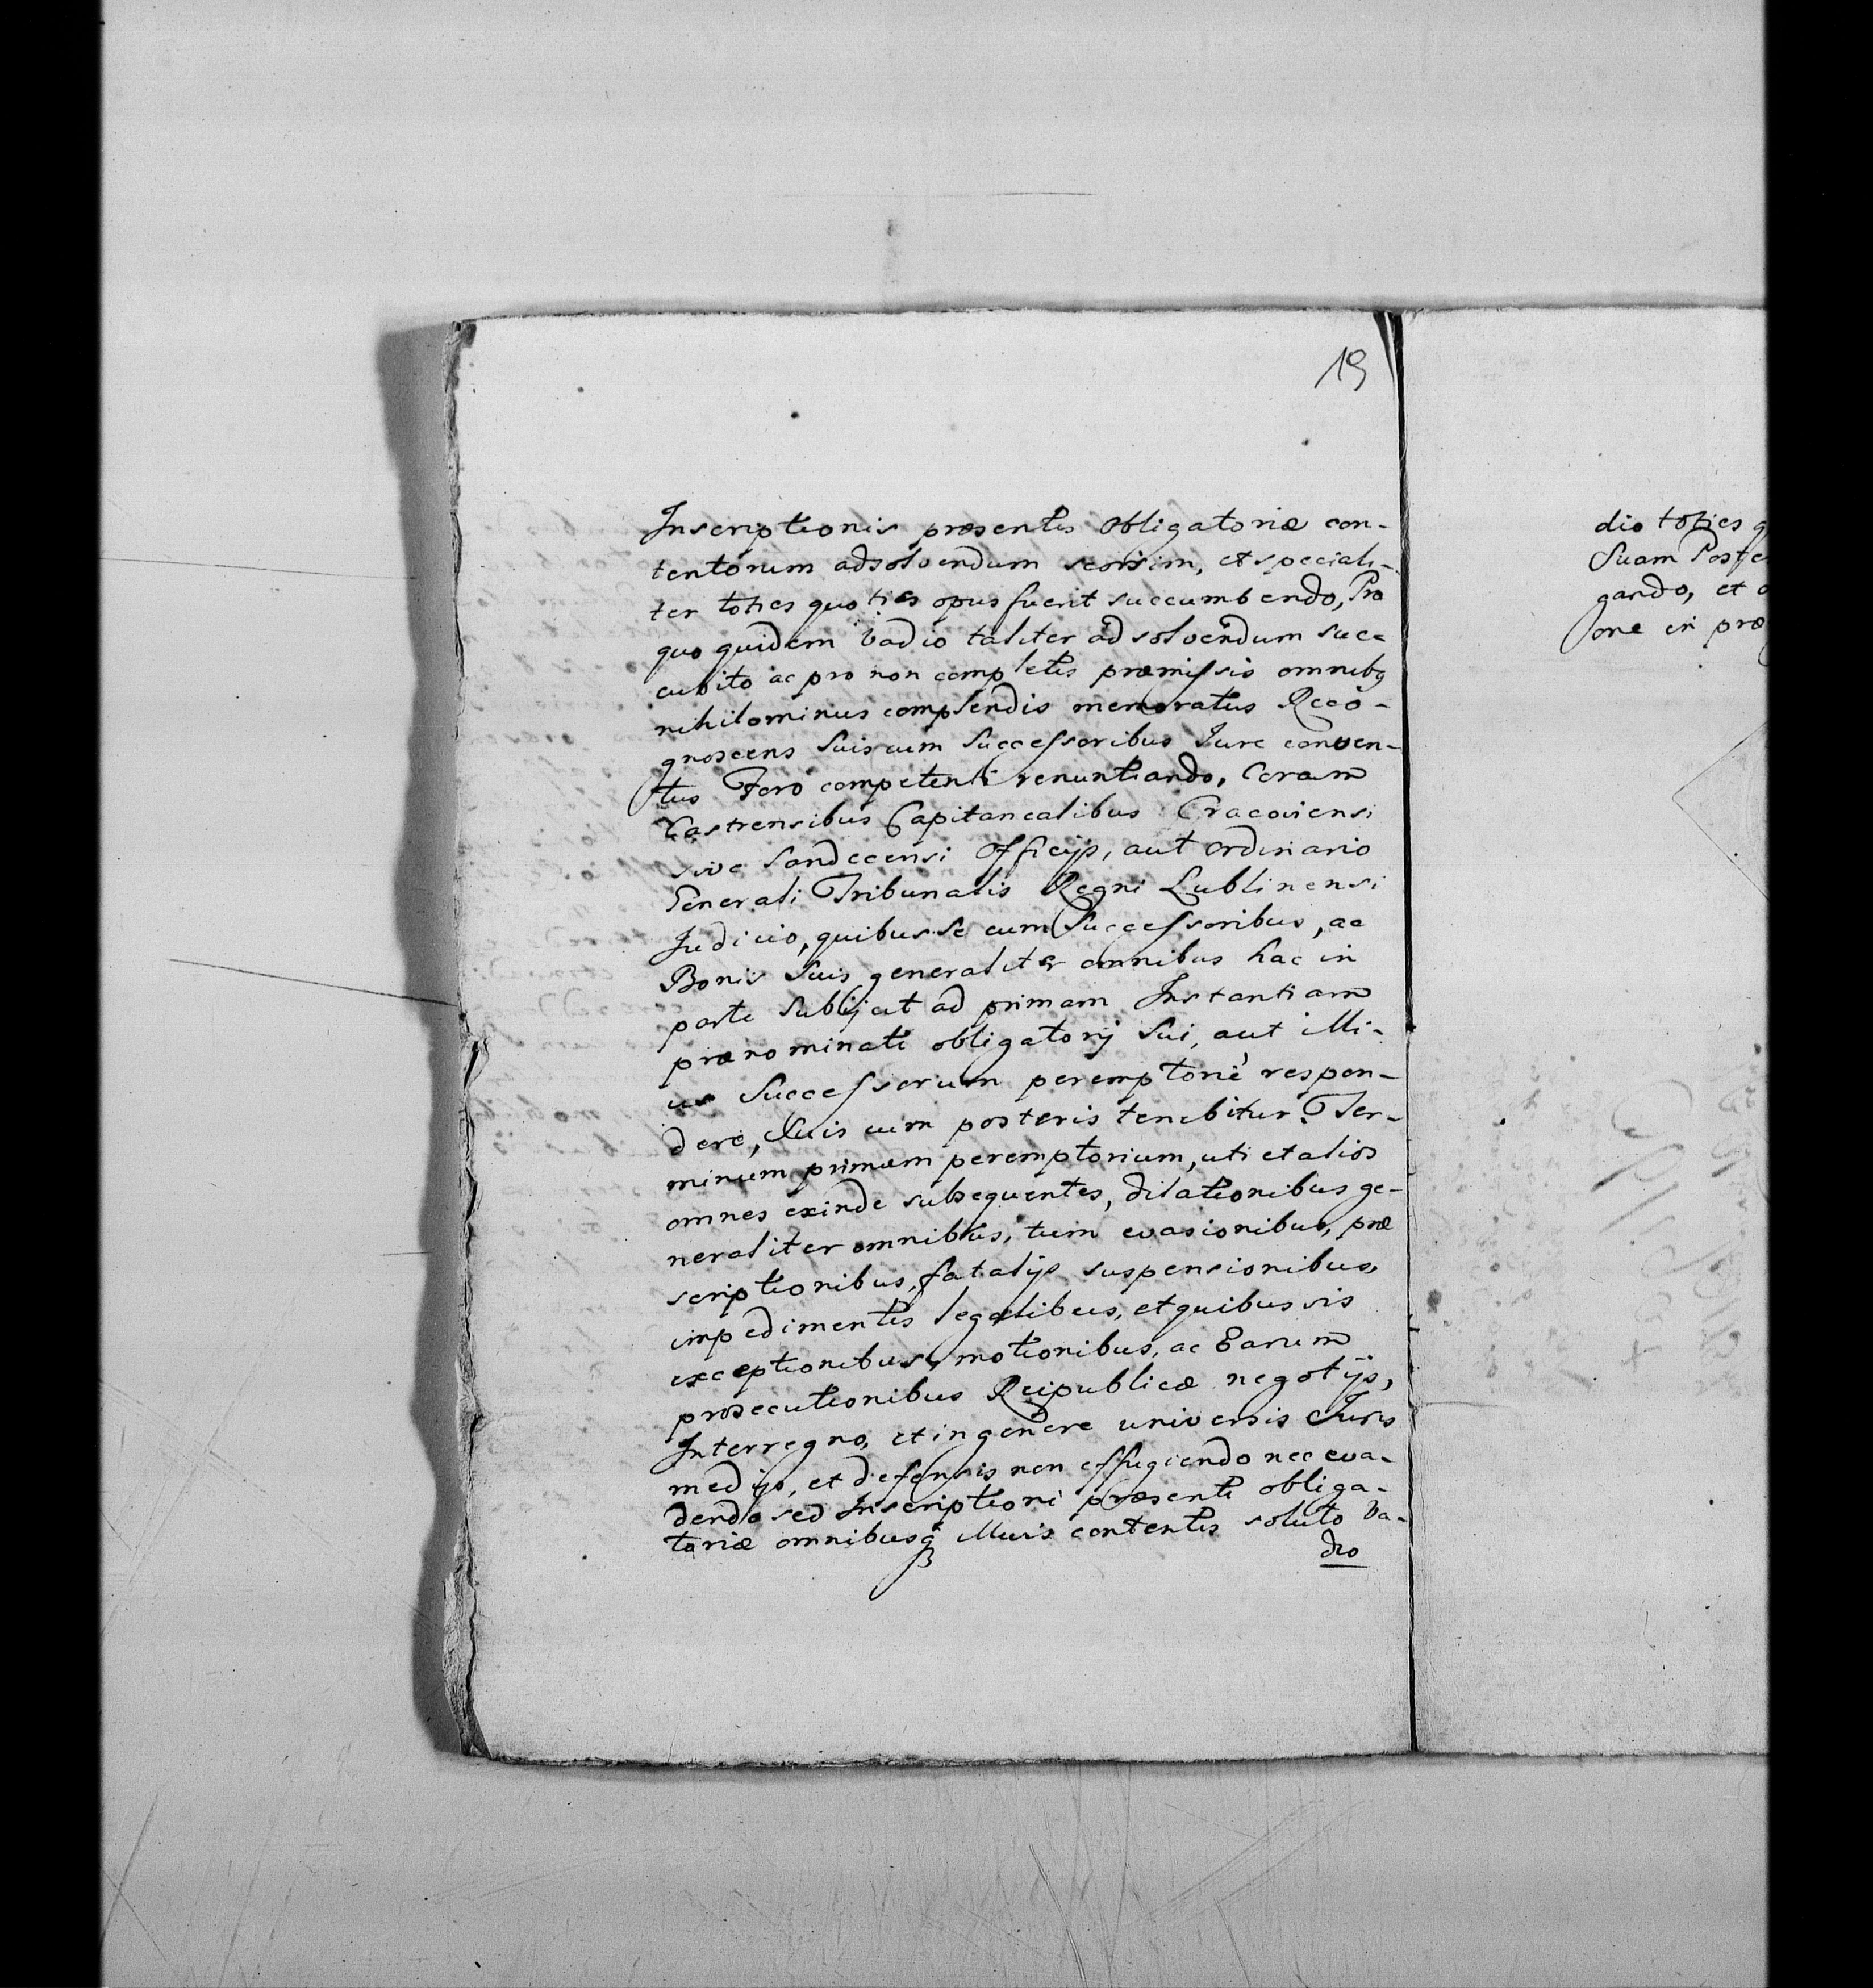 19
Inscriptionis præsentis Obligatoriæ con-
tentorum adsolvendum seorsim, et speciali-
ter toties quoties opus fuerit succumbendo, Pro
quo quidem Vadio taliter adsolvendum suc-
cubito ac pro non completis præmissis omnibq
nihilominus complendis memoratus Reco-
gnoscens Suis cum Successoribus Jure conven-
tus Foro competenti renuntiando, Coram
Castrensibus Capitanealibus Cracoviensi
sive Sandecensi Officijs, aut Ordinario
Generali Tribunalis Regni Lublinensi
Judicio, quibus se cum Successoribus, ac
Bonis Suis generaliter omnibus hac in
parte Subijcit ad primam Instantiam
prænominati obligatorij Sui, aut illi-
us Successorum peremptoriè respon-
dere, Suis cum posteris tenebitur. Ter-
minum primum peremptorium, uti et alios
omnes exinde subsequentes, dilationibus ge-
neraliter omnibus, tum evasionibus, præ
scriptionibus, fatalijs suspensionibus,
impedimentis legalibus, et quibusvis
exceptionibus, motionibus, ac Earum
prosecutionibus Reipublicæ negotijs,
Interregno, et in genere universis Juris
medijs, et defensis non effugiendo nec eva-
dendo sed Inscriptioni præsenti obliga-
toriæ omnibusq illius contentis soluto Va-
dio
dio toties q
Suam Poste
gando, et o
one in præ